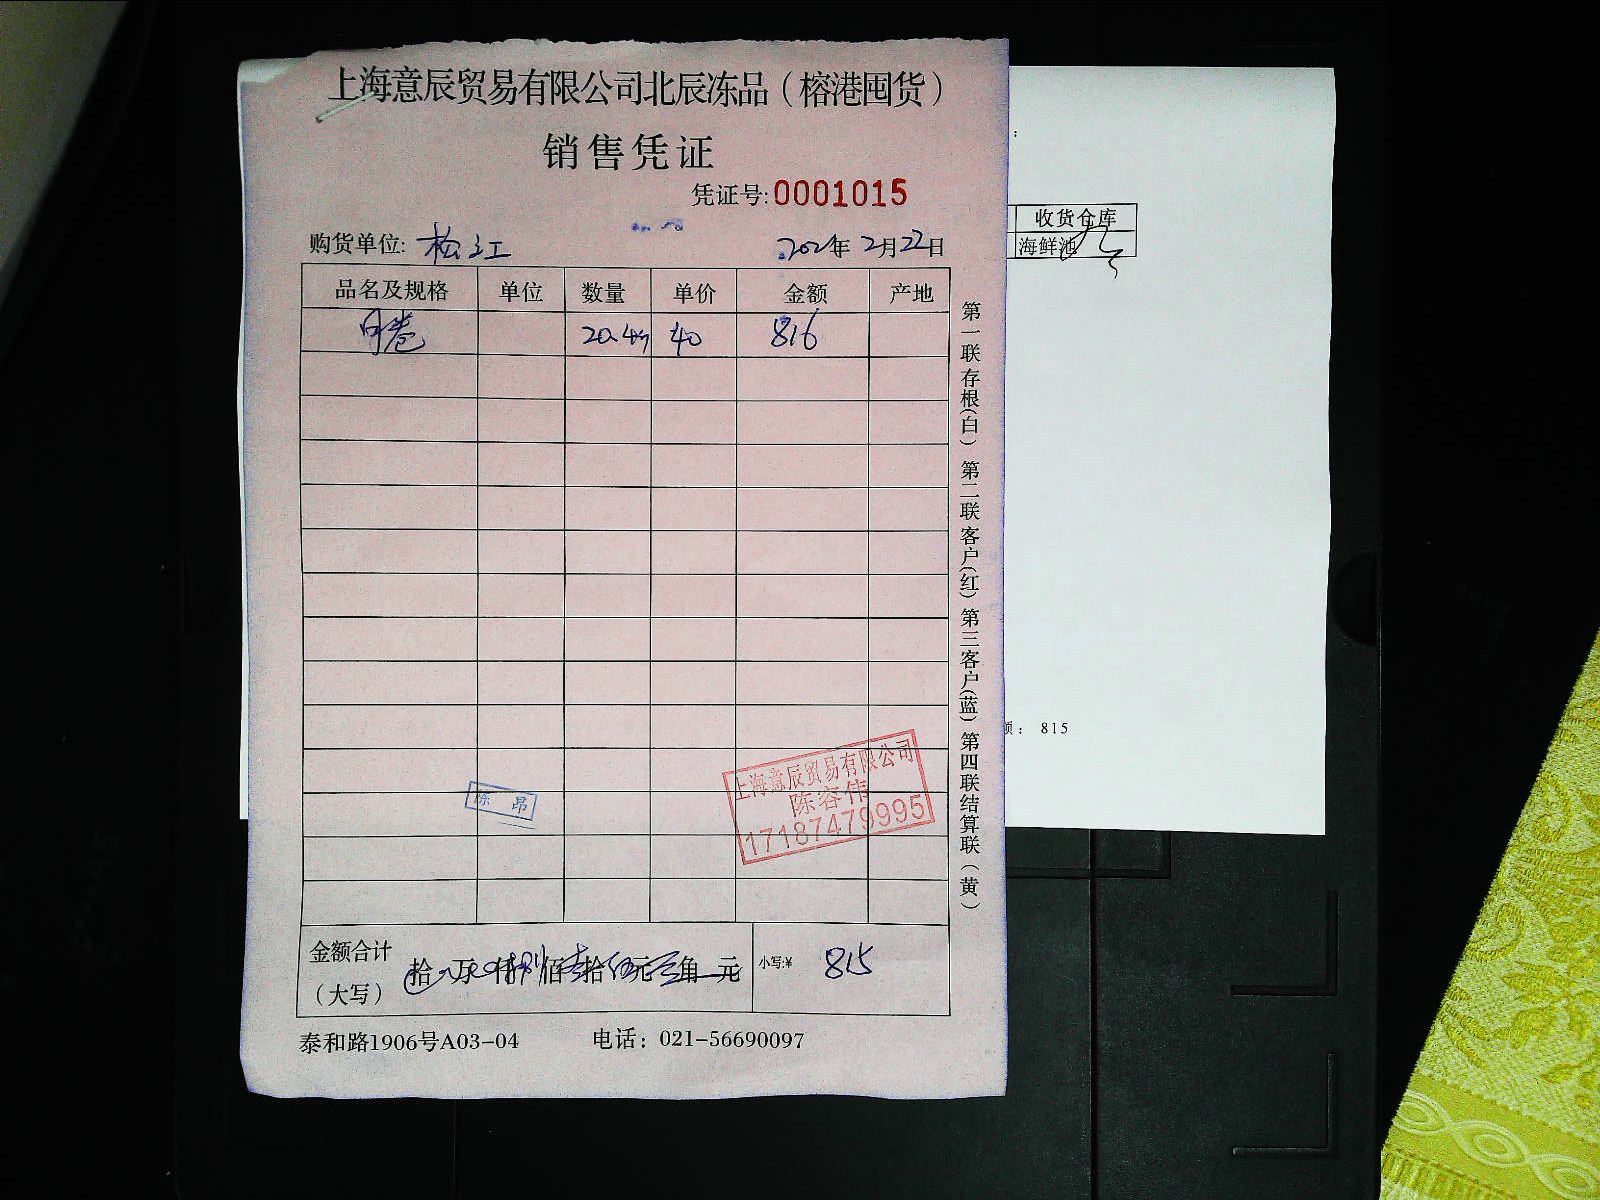 上海意辰贸易有限公司北辰冻品（榕港囤货）
销售凭证
凭证号:0001015
购货单位: 松江
2021年 2月22日
品名及规格 单位 数量 单价 金额 产地
20.4 40 816
第一联存根(白) 第二联客户(红) 第三客户(蓝) 第四联结算联(黄)
陈昂
上海意辰贸易有限公司
陈容伟
17187479995
金额合计
（大写）
拾 万 仟 捌佰 壹拾 伍元 角 元
小写:¥ 815
泰和路1906号A03-04 电话：021-56690097
收货仓库
海鲜池
：815